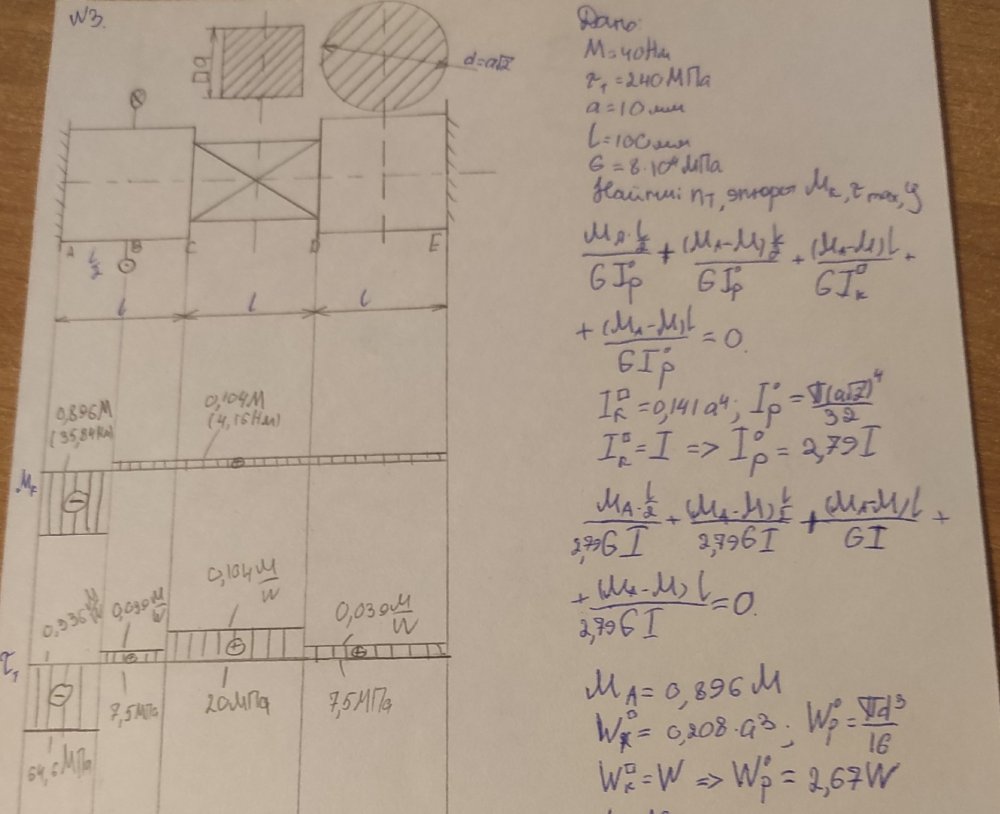 №3.
□a
d=a√2
A B C D E
l/2
l l l
0,896M
(35,84Нм)
0,104M
(4,16Нм)
Mк
0,336 M/W
0,039 M/W
0,104 M/W
0,039 M/W
τ₁
7,5МПа
20МПа
7,5МПа
64,6 МПа
Дано:
M=40Нм
τт=240МПа
a=10мм
l=100мм
G=8·10⁴МПа
Найти: nт, эпюры Mк, τmax, φ
(MA·l/2)/(GIp°) + ((MA-M)l/2)/(GIp°) + ((MA-M)l)/(GIк□) +
+ ((MA-M)l)/(GIp°) = 0.
Iк□=0,141a⁴; Ip°= π(a√2)⁴/32
Iк□=I => Ip°=2,79I
(MA·l/2)/(2,79GI) + ((MA-M)l/2)/(2,79GI) + ((MA-M)l)/(GI) +
+ ((MA-M)l)/(2,79GI) = 0.
MA=0,896M
Wк□=0,208·a³; Wp°= πd³/16
Wк□=W => Wp°=2,67W